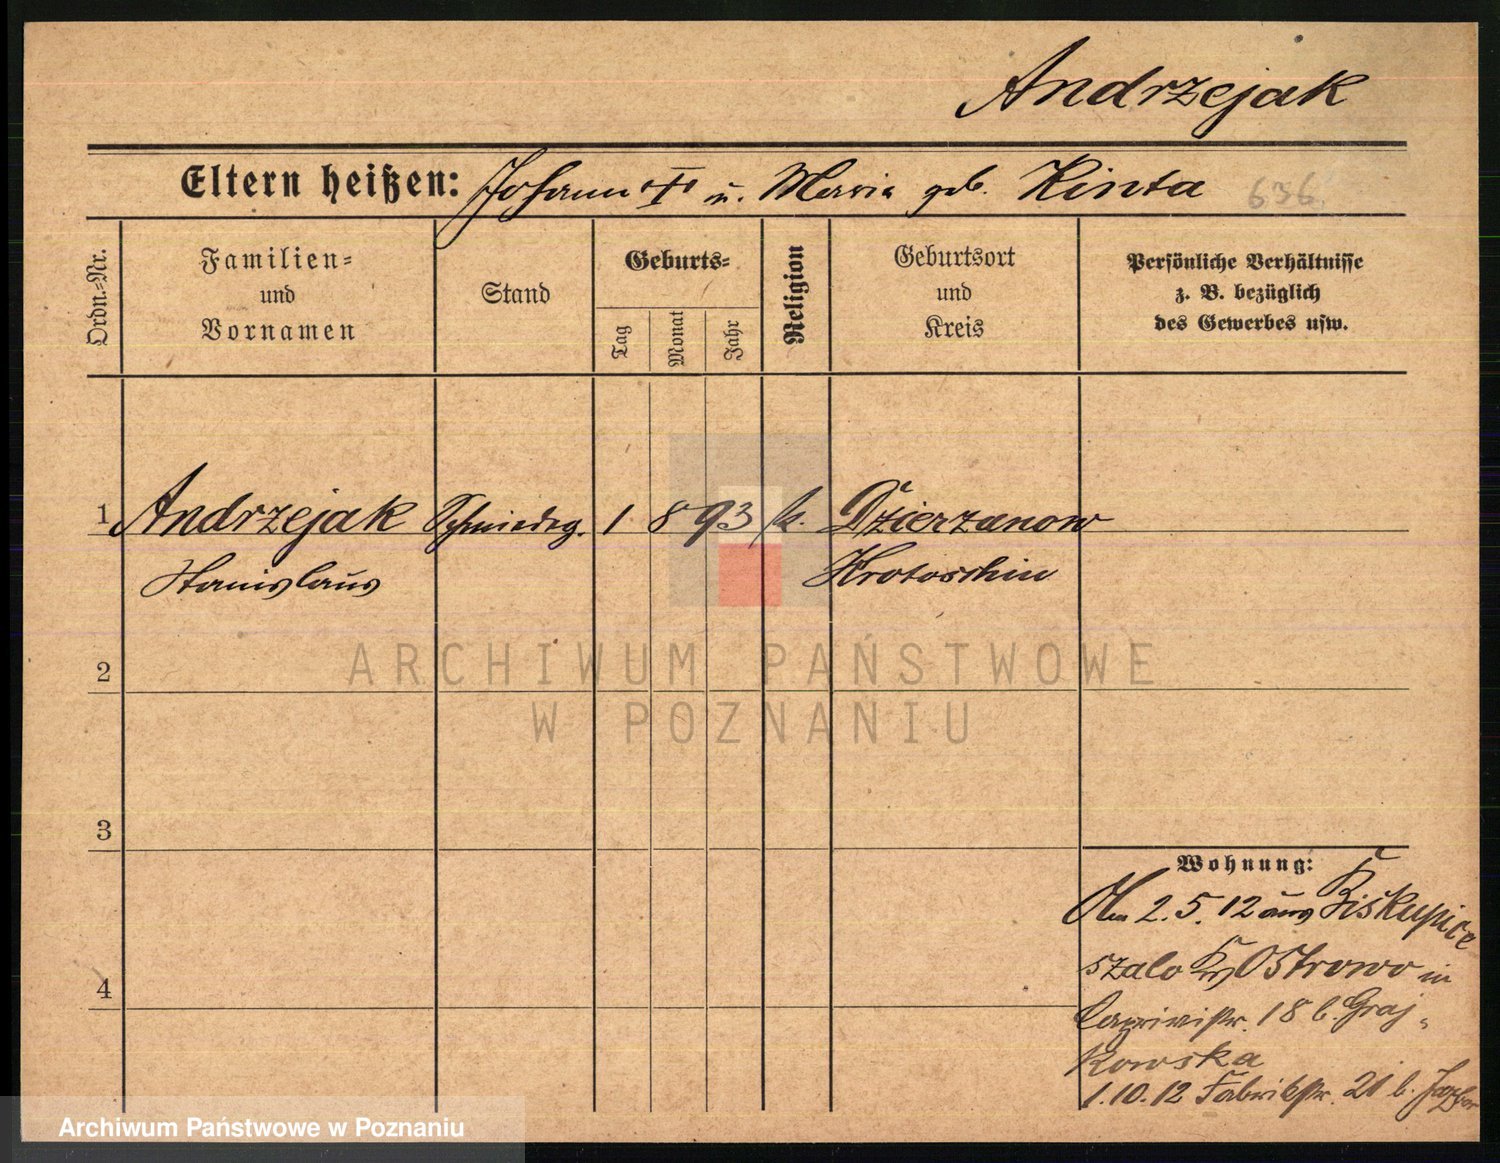 Andrzejak
Eltern heißen: Johann † u. Maria geb. Kinta 636
Ordn.-Nr.
Familien-
und
Vornamen
Stand
Geburts-
Tag
Monat
Jahr
Religion
Geburtsort
und
Kreis
Persönliche Verhältnisse
z. B. bezüglich
des Gewerbes usw.
1 Andrzejak Schmiedeg. 1 8 93 k. Dzierzanow
Stanislaus Krotoschin
2
3
4
Wohnung:
Am 2.5.12 aus Biskupice
szalo Krs Ostrowo in
Caprivistr. 18 b. Graj-
kowska
1.10.12 Fabrikstr. 21 b.
ARCHIWUM PAŃSTWOWE
W POZNANIU
Archiwum Państwowe w Poznaniu